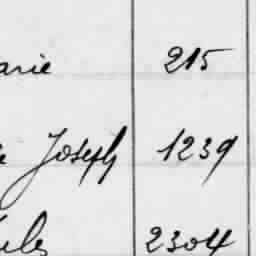 arie 215
e Joseph 1239
ules 2304